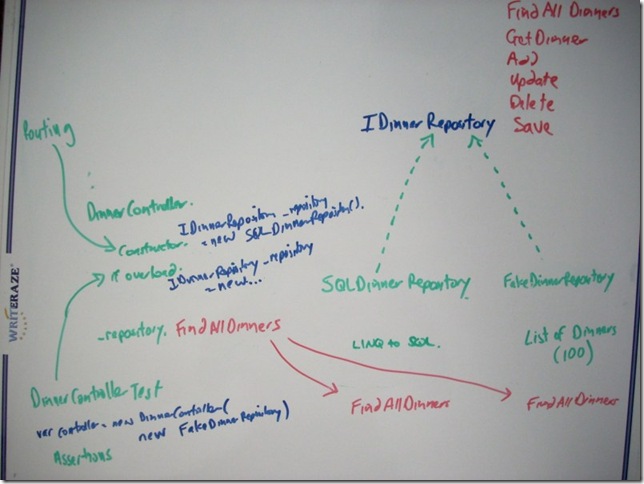 FindAll Dinners
GetDinner
Add
Update
Delete
Save
IDinnerRepository
Routing
DinnerController.
Constructor.
IDinnerRepository _repository
= new SQLDinnerRepository().
" overload.
IDinnerRepository _repository
= new...
SQLDinnerRepository.
FakeDinnerRepository
_repository. FindAllDinners
LINQ to SQL.
List of Dinners
(100)
DinnerControllerTest
var controller = new DinnerController(
new FakeDinnerRepository)
Assertions
FindAllDinners
FindAllDinners
WRITERAZE